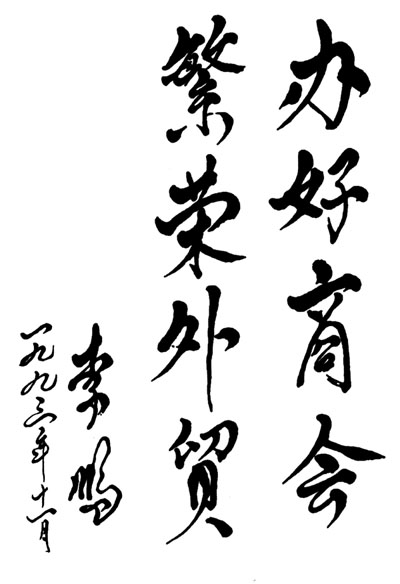 办好商会
繁荣外贸
李鹏
一九九三年十一月